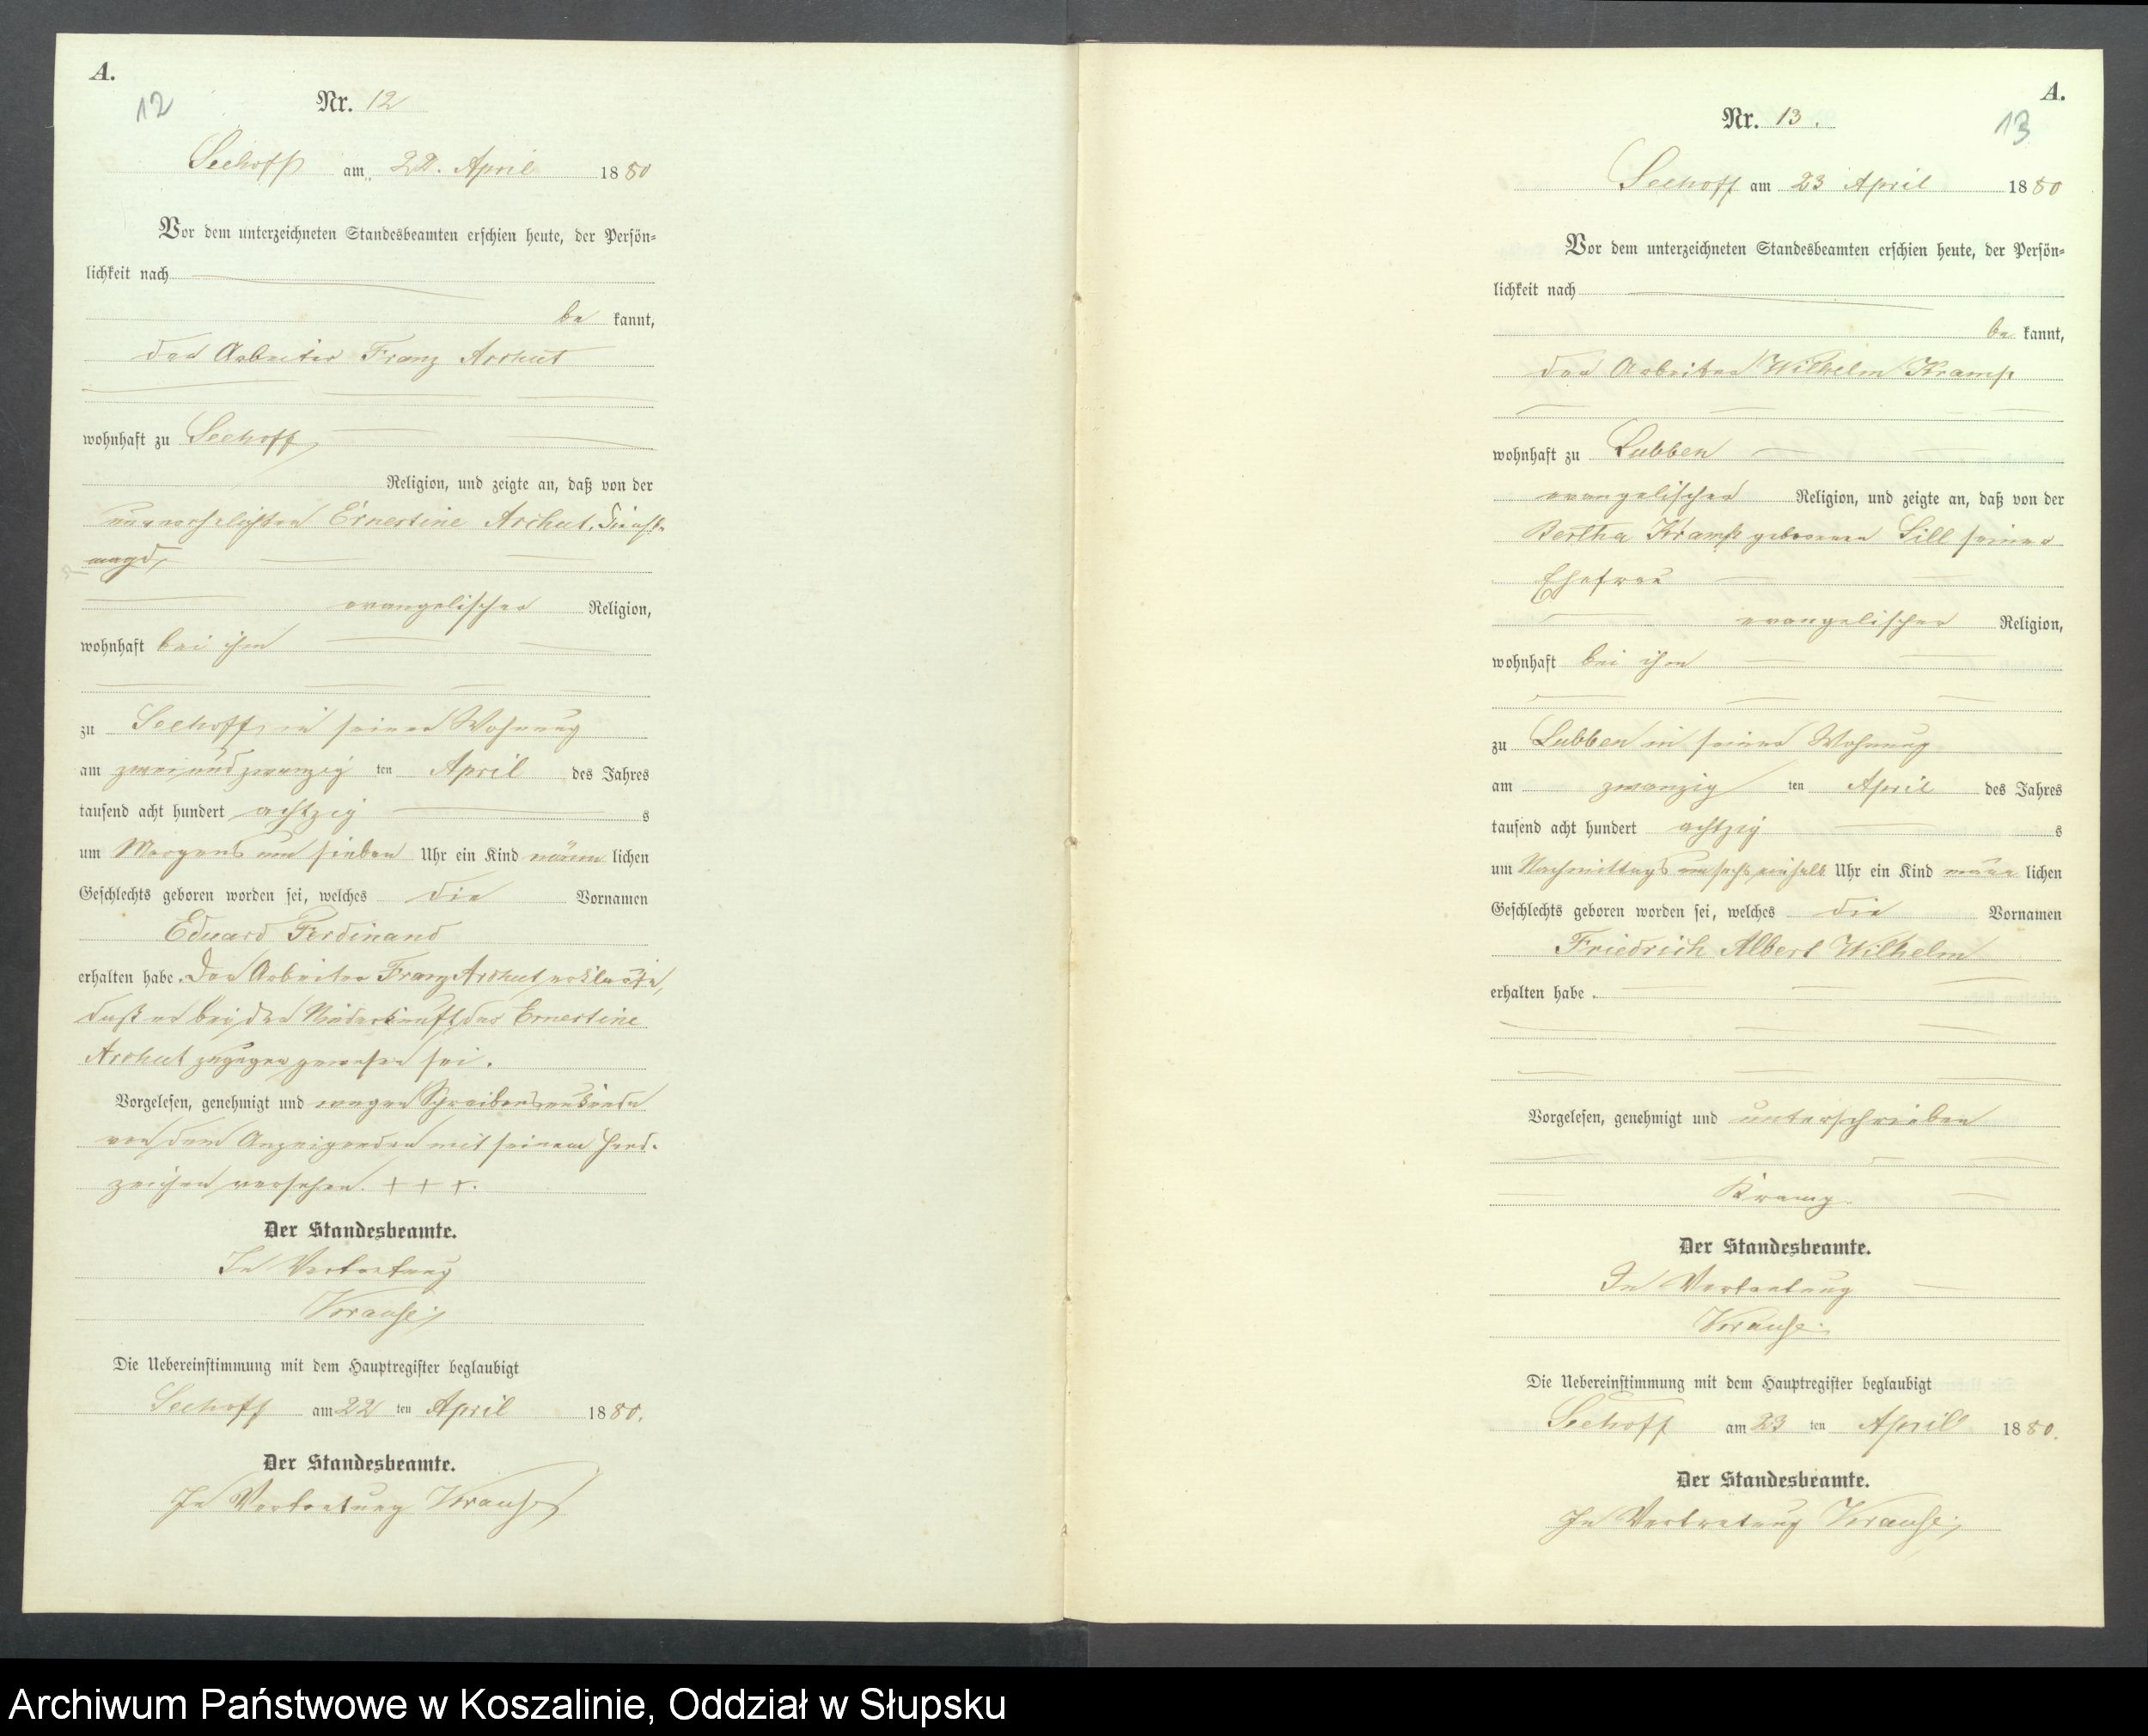 A.
12
Nr. 12
Seehoff am 22. April 1880
Vor dem unterzeichneten Standesbeamten erschien heute, der Persön=
lichkeit nach
be kannt,
der Arbeiter Franz Archut
wohnhaft zu Seehoff,
Religion, und zeigte an, daß von der
unverehelichten Ernestine Archut, Dienst-
magd,
evangelischer Religion,
wohnhaft bei ihm
zu Seehoff in seiner Wohnung
am zwei und zwanzig ten April des Jahres
tausend acht hundert achtzig s
um Morgens um sieben Uhr ein Kind männ lichen
Geschlechts geboren worden sei, welches die Vornamen
Eduard Ferdinand
erhalten habe. Der Arbeiter Franz Archut erklärte,
daß er bei der Niederkunft der Ernestine
Archut zugegen gewesen sei.
Vorgelesen, genehmigt und wegen Schreibensunkunde
von dem Anzeigenden mit seinem Hand-
zeichen versehen. + + +.
Der Standesbeamte.
In Vertretung
Krause
Die Uebereinstimmung mit dem Hauptregister beglaubigt
Seehoff am 22 ten April 1880.
Der Standesbeamte.
In Vertretung Krause
A.
13
Nr. 13.
Seehoff am 23 April 1880
Vor dem unterzeichneten Standesbeamten erschien heute, der Persön=
lichkeit nach
be kannt,
der Arbeiter Wilhelm Kramp
wohnhaft zu Lubben
evangelischer Religion, und zeigte an, daß von der
Bertha Kramp geborenen Sill seiner
Ehefrau
evangelischer Religion,
wohnhaft bei ihm
zu Lubben in seiner Wohnung
am zwanzig ten April des Jahres
tausend acht hundert achtzig s
um Nachmittags um sechs einhalb Uhr ein Kind männ lichen
Geschlechts geboren worden sei, welches die Vornamen
Friedrich Albert Wilhelm
erhalten habe.
Vorgelesen, genehmigt und unterschrieben
Kramp.
Der Standesbeamte.
In Vertretung
Krause
Die Uebereinstimmung mit dem Hauptregister beglaubigt
Seehoff am 23 ten April 1880.
Der Standesbeamte.
In Vertretung Krause
Archiwum Państwowe w Koszalinie, Oddział w Słupsku